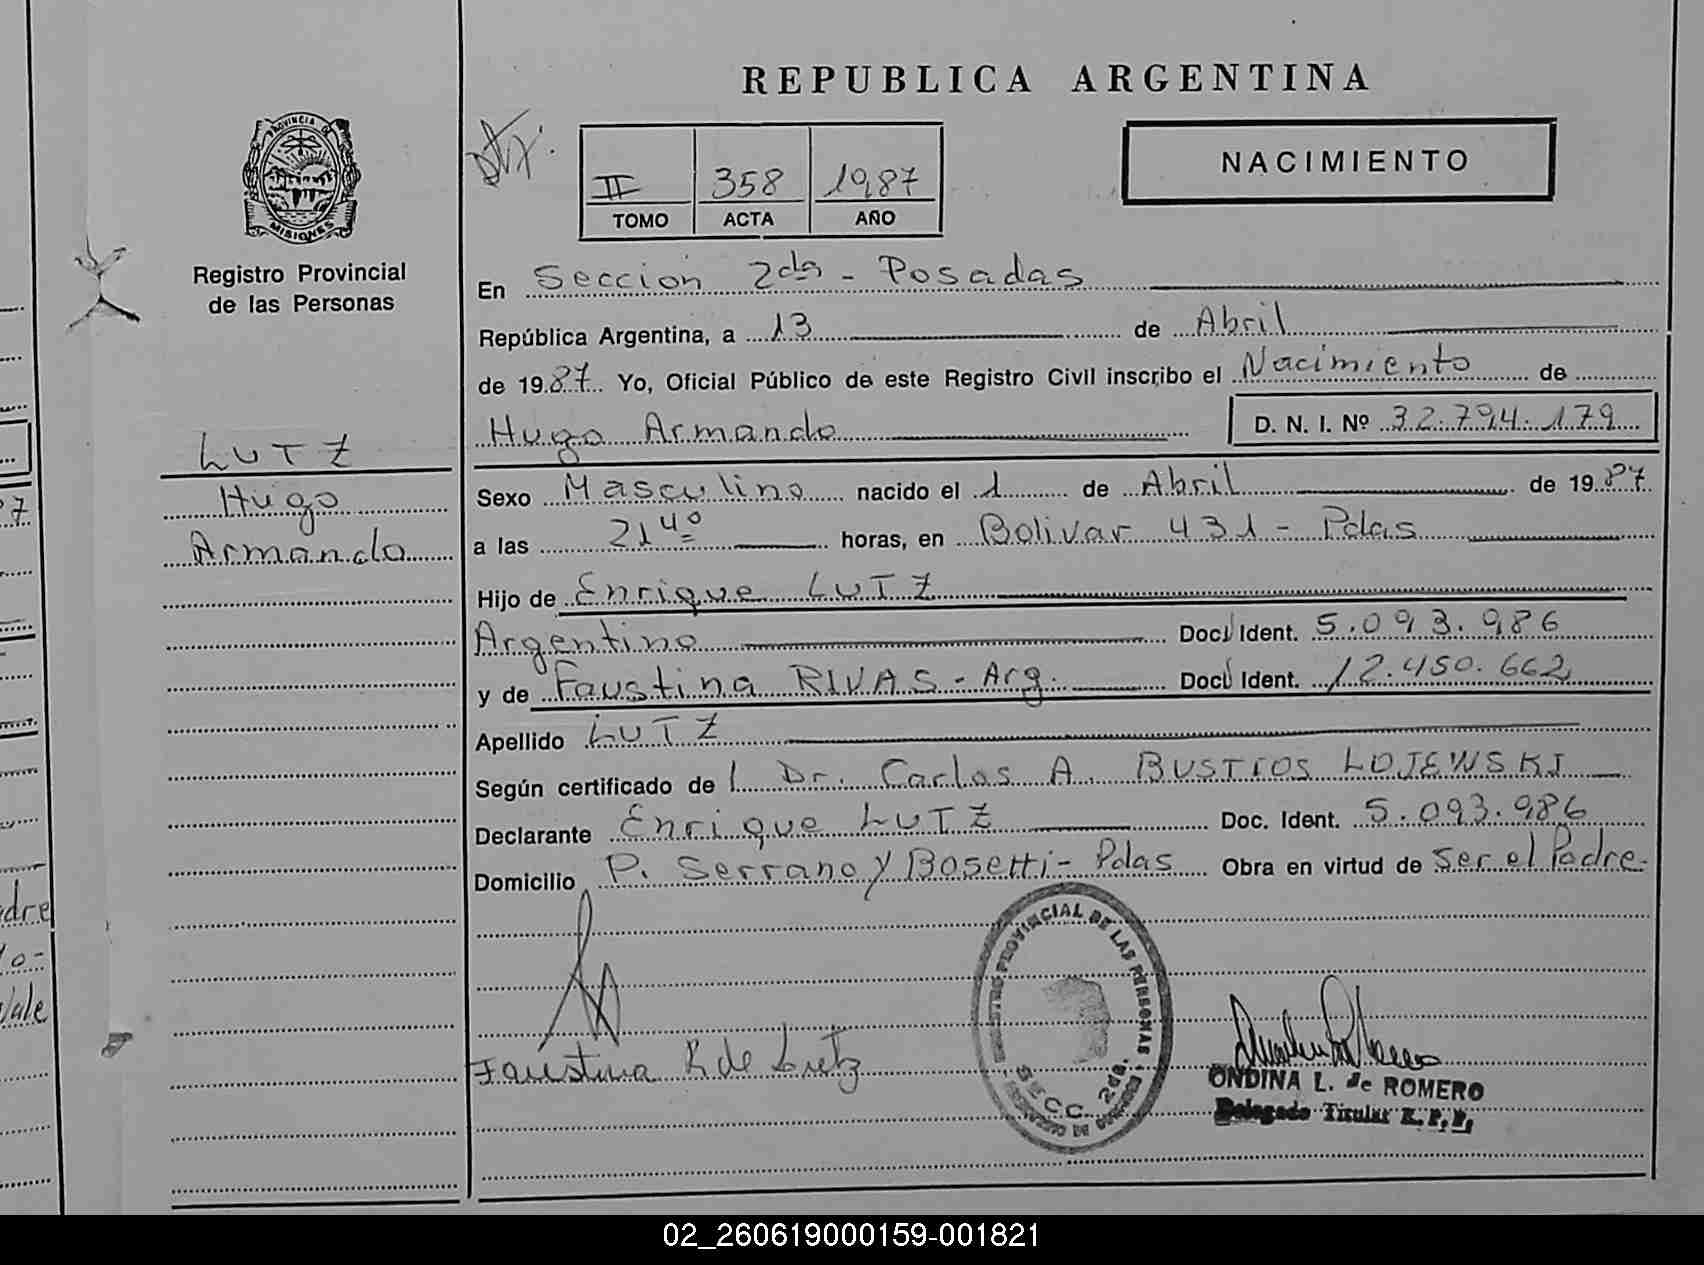 REPUBLICA ARGENTINA
PROVINCIA DE
MISIONES
Registro Provincial
de las Personas
II 358 1987
TOMO ACTA AÑO
NACIMIENTO
En Sección 2da - Posadas
República Argentina, a 13 de Abril
de 1987 Yo, Oficial Público de este Registro Civil inscribo el Nacimiento de
Hugo Armando D. N. I. Nº 32.794.179
LUTZ
Hugo
Armando
Sexo Masculino nacido el 1 de Abril de 1987
a las 21 40 horas, en Bolivar 431 - Pdas
Hijo de Enrique LUTZ
Argentino Doc. Ident. 5.093.986
y de Faustina RIVAS - Arg. Doc. Ident. 12.450.662
Apellido LUTZ
Según certificado de Dr. Carlos A. BUSTTOS LOJEWSKI
Declarante Enrique LUTZ Doc. Ident. 5.093.986
Domicilio P. Serrano y Bosetti - Pdas Obra en virtud de Ser el Padre.
Faustina R de Lutz
REGISTRO PROVINCIAL DE LAS PERSONAS
SECC. 2da.
ONDINA L. de ROMERO
Delegado Titular R.P.P.
dre
Vale
02_260619000159-001821